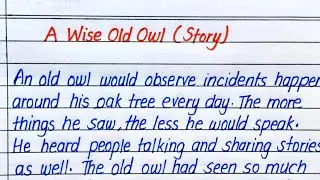 A Wise Old Owl (Story)
An old owl would observe incidents happen
around his oak tree every day. The more
things he saw, the less he would speak.
He heard people talking and sharing stories
as well. The old owl had seen so much